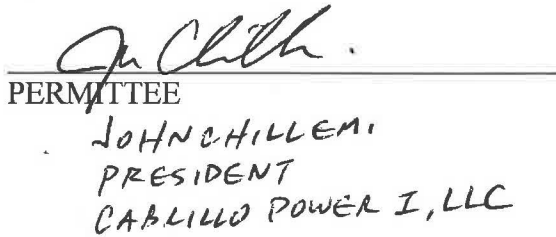 John Chill
PERMITTEE
JOHN CHILLEMI
PRESIDENT
CABRILLO POWER I, LLC